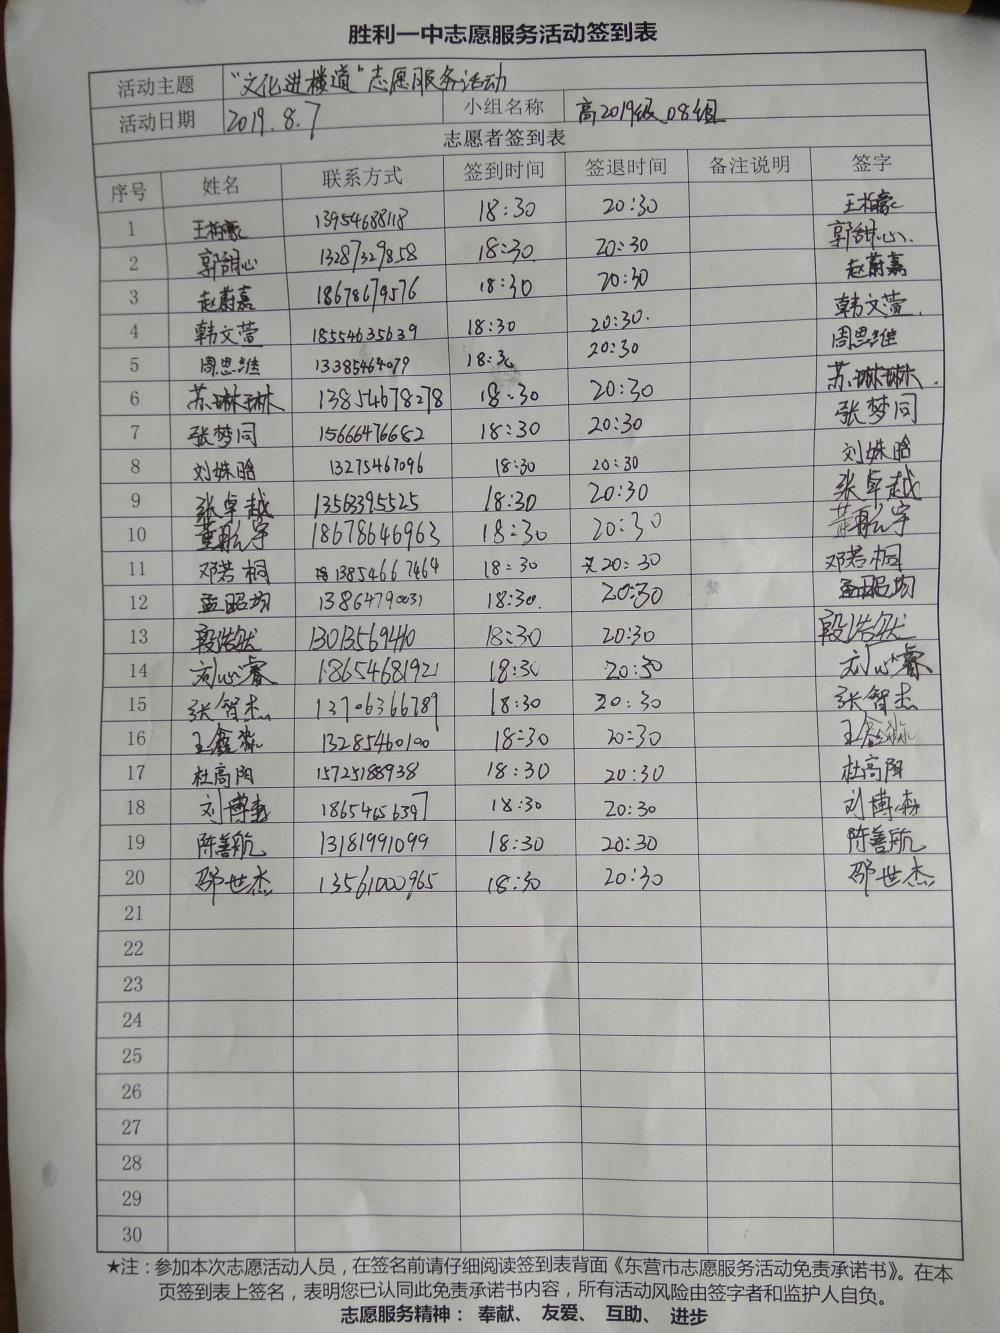 胜利一中志愿服务活动签到表
活动主题 “文化进楼道”志愿服务活动
活动日期 2019.8.7 小组名称 高2019级08组
志愿者签到表
序号 姓名 联系方式 签到时间 签退时间 备注说明 签字
1 王柏豪 13954688118 18:30 20:30 王柏豪
2 郭甜心 13287329858 18:30 20:30 郭甜心
3 赵蔚嘉 18678679576 18:30 20:30 赵蔚嘉
4 韩文萱 18554635639 18:30 20:30. 韩文萱.
5 周思维 13385464079 18:30 20:30 周思维
6 苏琳琳 13854678278 18:30 20:30 苏琳琳.
7 张梦同 15666476682 18:30 20:30 张梦同
8 刘姝晗 13275467096 18:30 20:30 刘姝晗
9 张卓越 13563395525 18:30 20:30 张卓越
10 董 宇 18678646963 18:30 20:30 董 宇
11 邓若桐 13854667464 18:30 20:30 邓若桐
12 孟昭均 13864790031 18:30. 20:30 孟昭均
13 段浩然 1301356940 18:30 20:30 段浩然
14 刘心睿 18654681921 18:30 20:30 刘心睿
15 张智杰 13706366789 18:30 20:30 张智杰
16 王鑫淼 13285460100 18:30 20:30 王鑫淼
17 杜高阳 15725188938 18:30 20:30 杜高阳
18 刘博森 18654656397 18:30 20:30 刘博森
19 陈善航 13181991099 18:30 20:30 陈善航
20 邵世杰 13561000965 18:30 20:30 邵世杰
21
22
23
24
25
26
27
28
29
30
★注：参加本次志愿活动人员，在签名前请仔细阅读签到表背面《东营市志愿服务活动免责承诺书》。在本
页签到表上签名，表明您已认同此免责承诺书内容，所有活动风险由签字者和监护人自负。
志愿服务精神： 奉献、 友爱、 互助、 进步